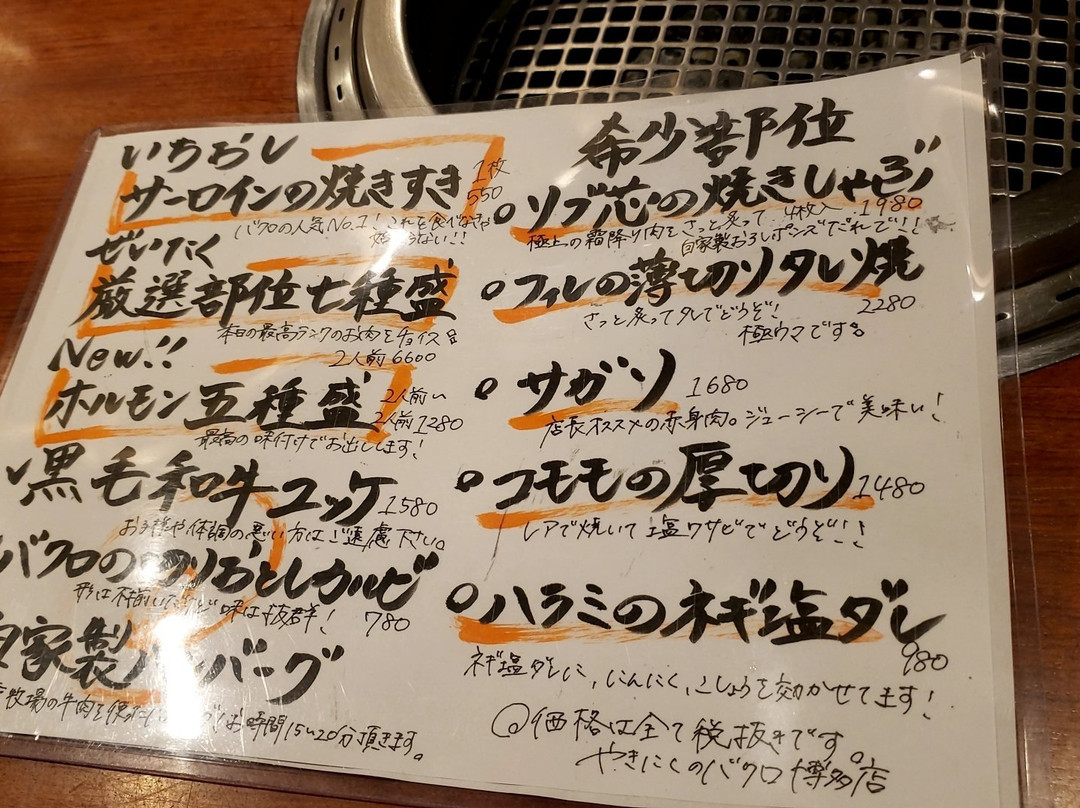 いちおし
サーロインの焼きすき 1枚 550
バクロの人気No.1!これを食べなきゃ
始まらない!!
ぜいたく
厳選部位七種盛
本日の最高ランクのお肉をチョイス
2人前 6600
New!!
ホルモン五種盛 2人前〜
2人前 1280
最高の味付けでお出しします!
黒毛和牛ユッケ 1580
お子様や体調の悪い方はご遠慮下さい。
バクロの切りおとしカルビ
形は不揃いだけど味は抜群! 780
自家製ハンバーグ
牧場の牛肉を使
お時間15〜20分頂きます。
希少部位
リブ芯の焼きしゃぶ
4枚入 1980
極上の霜降り肉をさっと炙って
自家製おろしポンズだれで!!
フィレの薄切りタレ焼 2280
さっと炙ってタレでどうぞ!
極ウマです。
サガリ 1680
店長オススメの赤身肉。ジューシーで美味い!
コモモの厚切り 1480
レアで焼いて塩ワサビでどうぞ!!
ハラミのネギ塩ダレ 980
ネギ塩ダレに,にんにく,こしょうを効かせてます!
◎価格は全て税抜きです。
やきにくのバクロ博多店